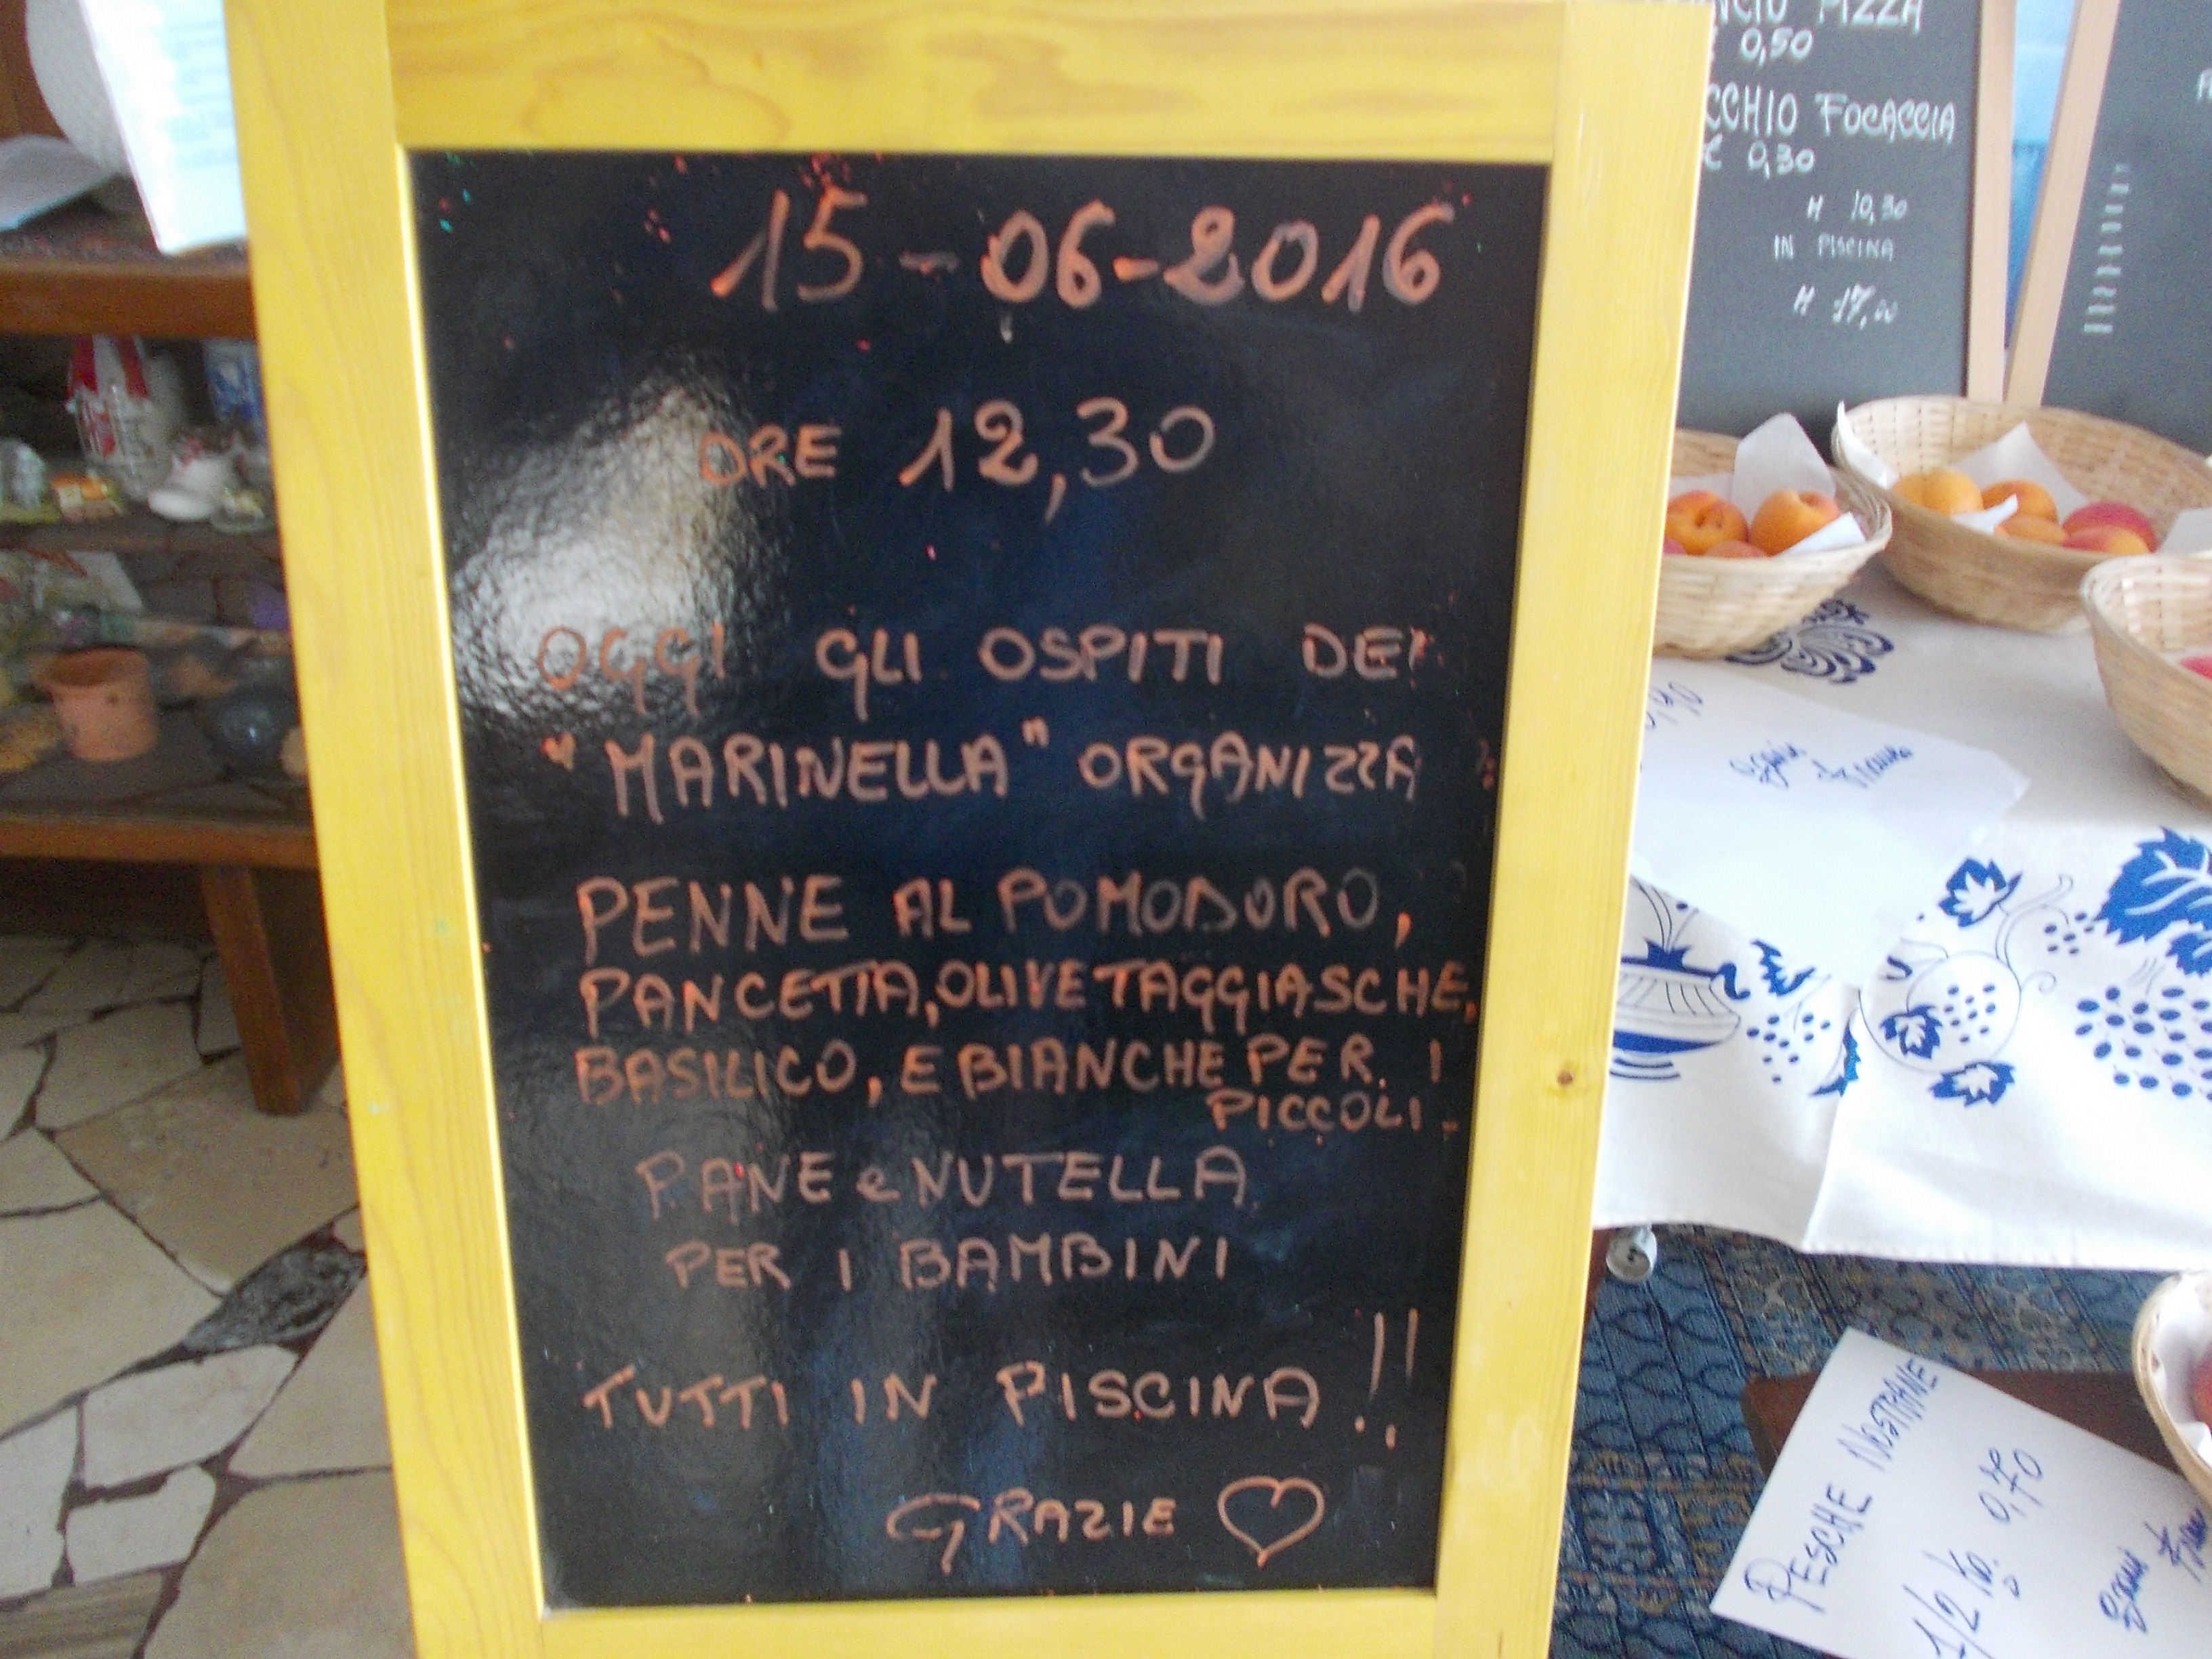 15-06-2016
ORE 12,30
OGGI GLI OSPITI DEI
"MARINELLA" ORGANIZZA
PENNE AL POMODORO,
PANCETTA, OLIVE TAGGIASCHE,
BASILICO, E BIANCHE PER I
PICCOLI.
PANE e NUTELLA
PER I BAMBINI
TUTTI IN PISCINA!!
GRAZIE
PIZZA
0,50
CCHIO FOCACCIA
€ 0,30
H 10,30
IN PISCINA
H 17,00
PESCHE NOSTRANE
1/2 KG. 0,70